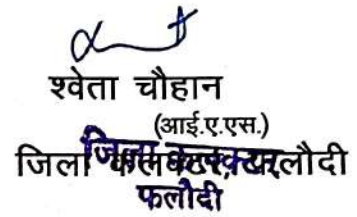 श्वेता चौहान
(आई.ए.एस.)
जिला कलक्टर, फलौदी
जिला कलक्टर
फलोदी